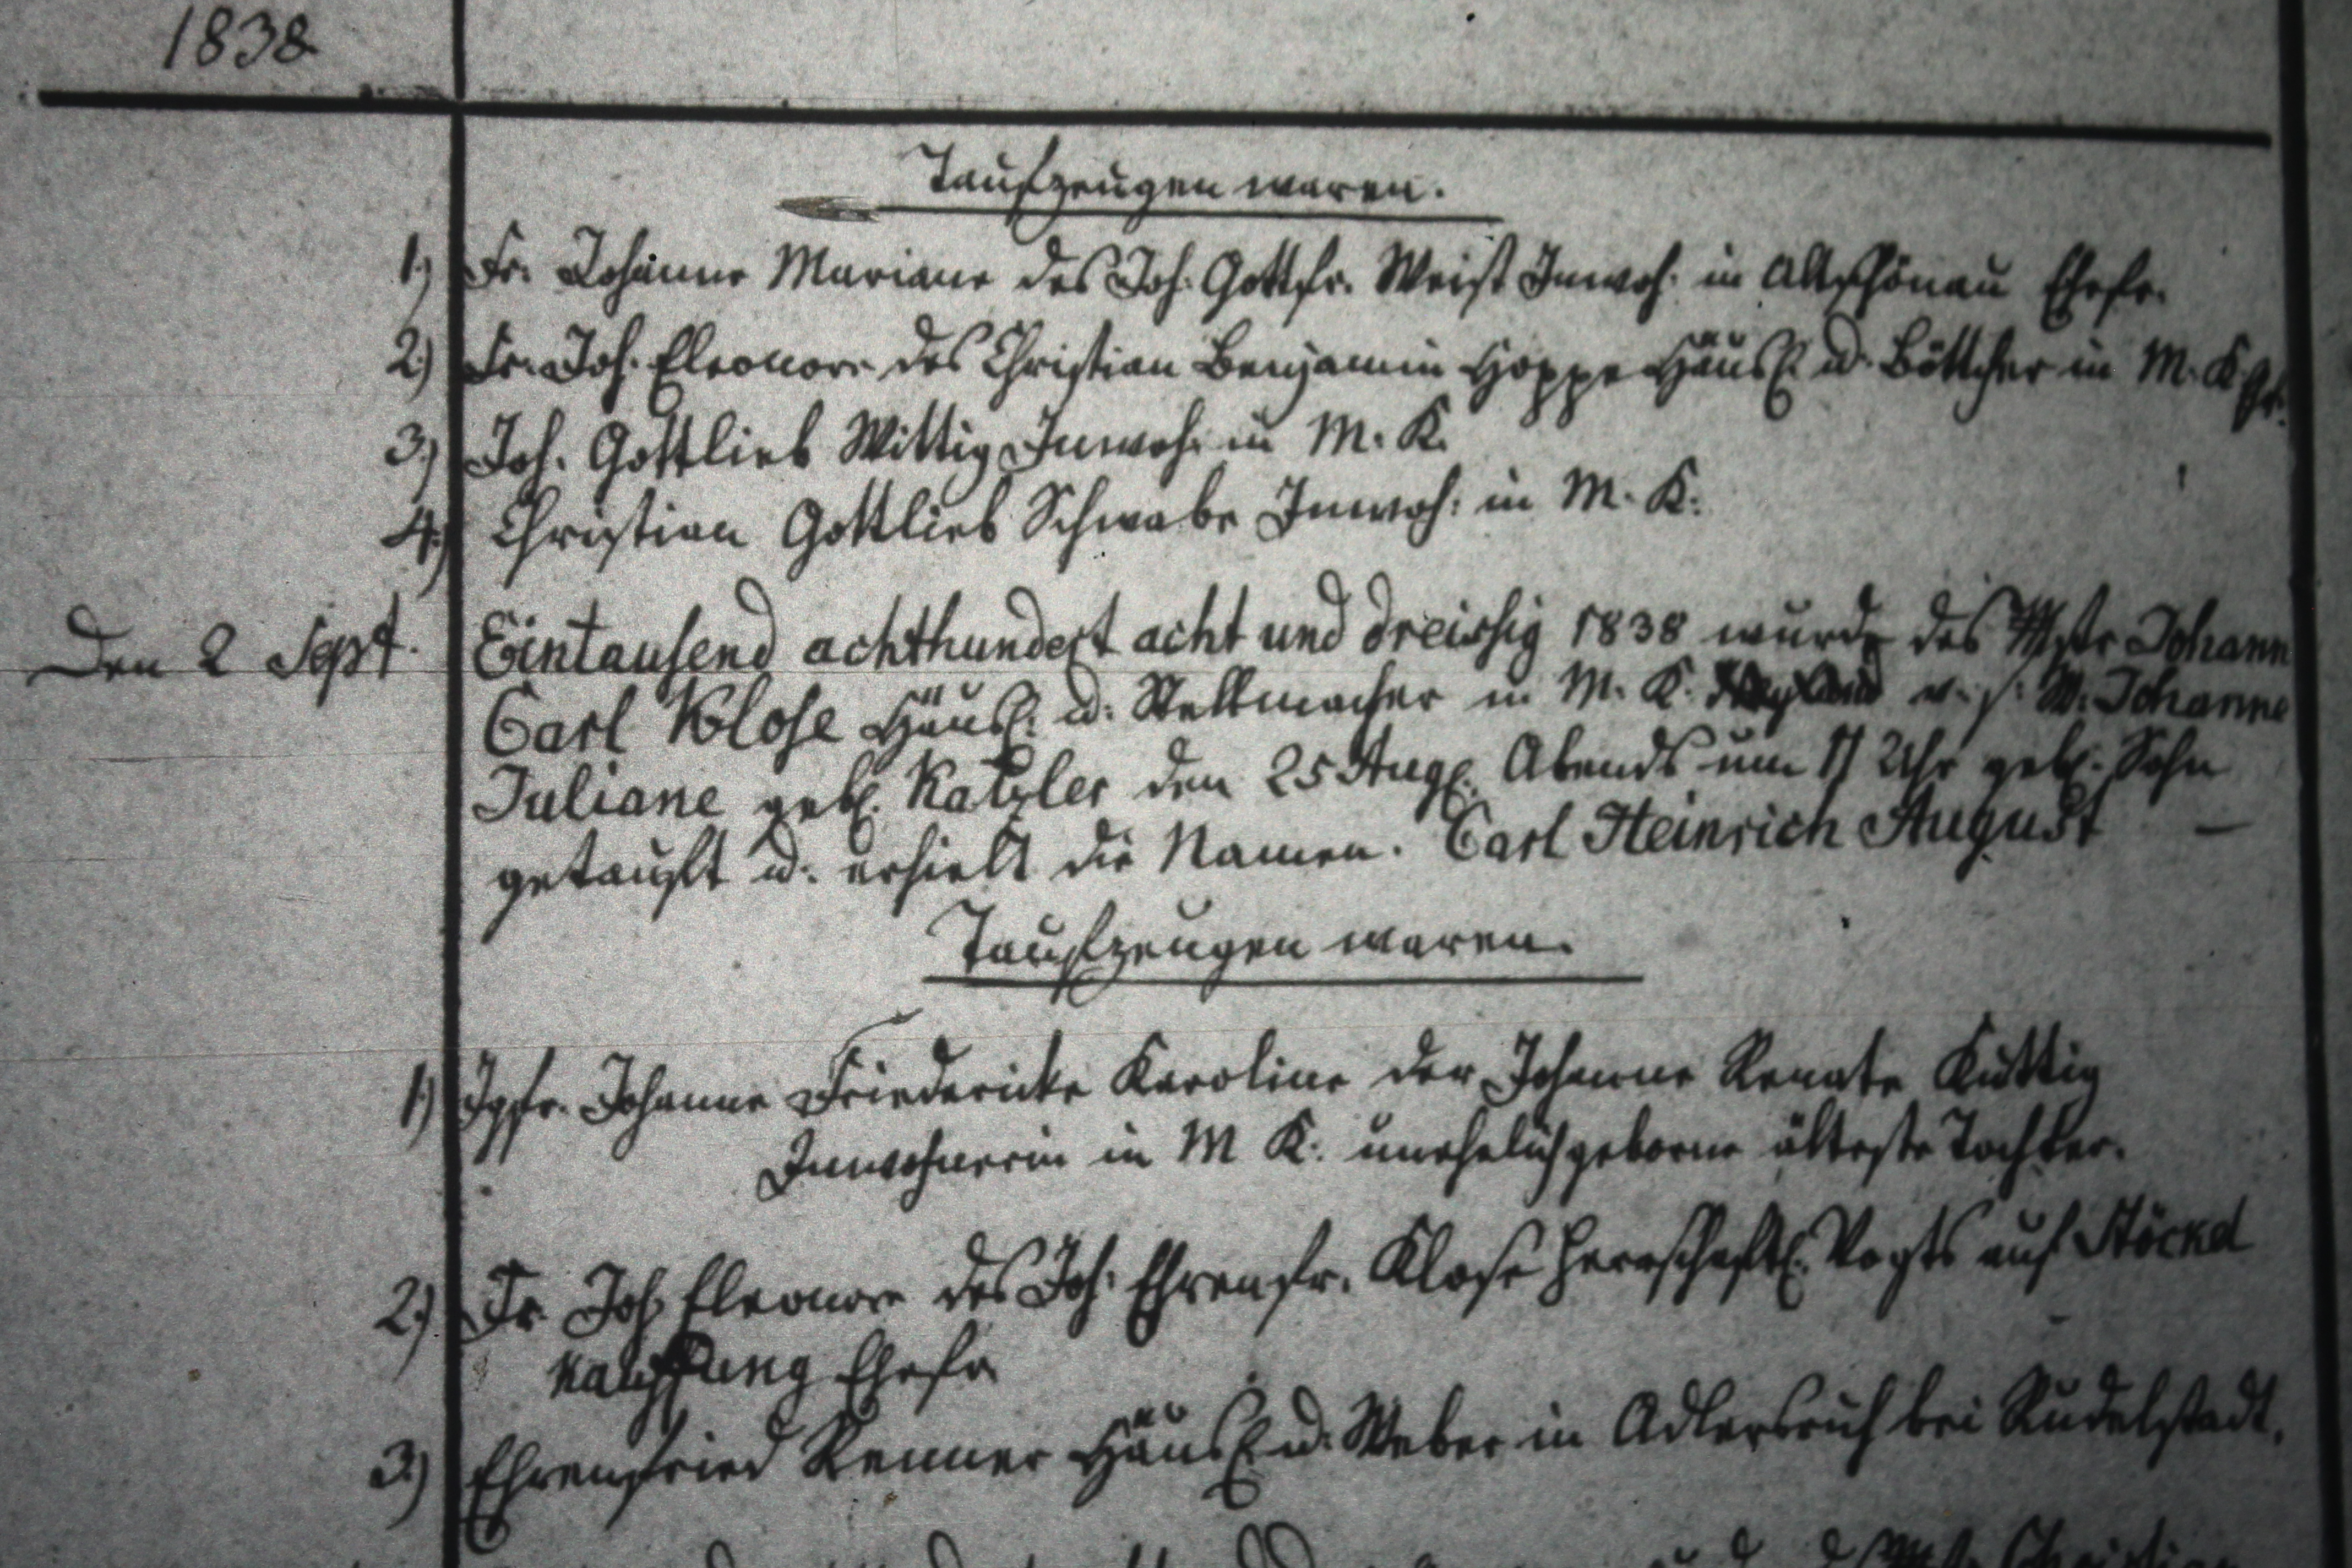 1838
Taufzeugen waren.
1.) Fr. Johanne Mariane des Joh. Gottfr. Weist Inwoh: in Altschönau Ehefr.
2.) Fr. Joh. Eleonore des Christian Benjamin Hoppe Häusl. u. Böttcher in M. K.
3.) Joh. Gottlieb Wittig Inwoh: in M. K.
4.) Christian Gottlieb Schwabe Inwoh: in M. K.
Den 2 Sept. Eintausend achthundert acht und dreissig 1838 wurde des Mstr Johann
Carl Klose Häusl: u: Stellmacher in M. K. v. s: W. Johanne
Juliane geb. Katzler den 25 Aug. Abends um 11 Uhr geb. Sohn
getauft u: erhielt die Namen. Carl Heinrich August —
Taufzeugen waren.
1.) Jgfr. Johanne Friedericke Karoline der Johanne Renate Kuttig
Inwohnerin in M K. unehelich geborne älteste Tochter.
2.) Fr. Joh. Eleonore des Joh. Ehrenfr. Klose herrschaftl. Vogts auf Stöckel
Kauffung Ehefr
3.) Ehrenfried Renner Häusl. u. Weber in Adlersruh bei Rudelstadt.